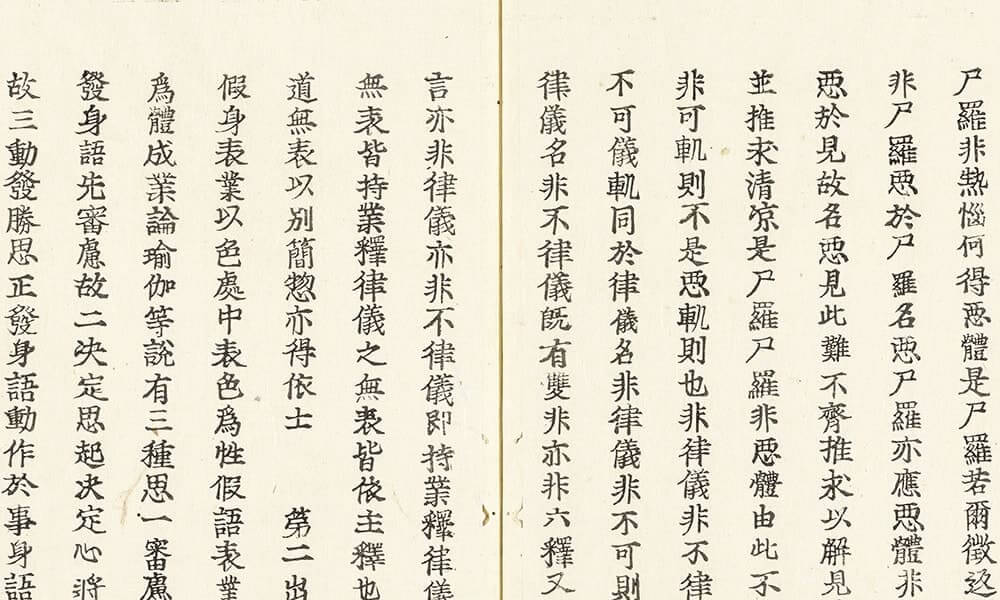 尸羅非熱惱何得惡體是尸羅若爾徵返
非尸羅惡於尸羅名惡尸羅亦應惡體非
惡於見故名惡見此難不齊推求以解見
並推求清凉是尸羅尸羅非惡體由此不
非可軌則不是惡軌則也非律儀非不律
不可儀軌同於律儀名非律儀非不可則
律儀名非不律儀既有雙非亦非六釋又
言亦非律儀亦非不律儀即持業釋律儀
無表皆持業釋律儀之無表皆依主釋也
道無表以別簡惣亦得依士　第二出
假身表業以色處中表色爲性假語表業
爲體成業論瑜伽等說有三種思一審慮
發身語先審慮故二决定思起决定心將
故三動發勝思正發身語動作於事身語